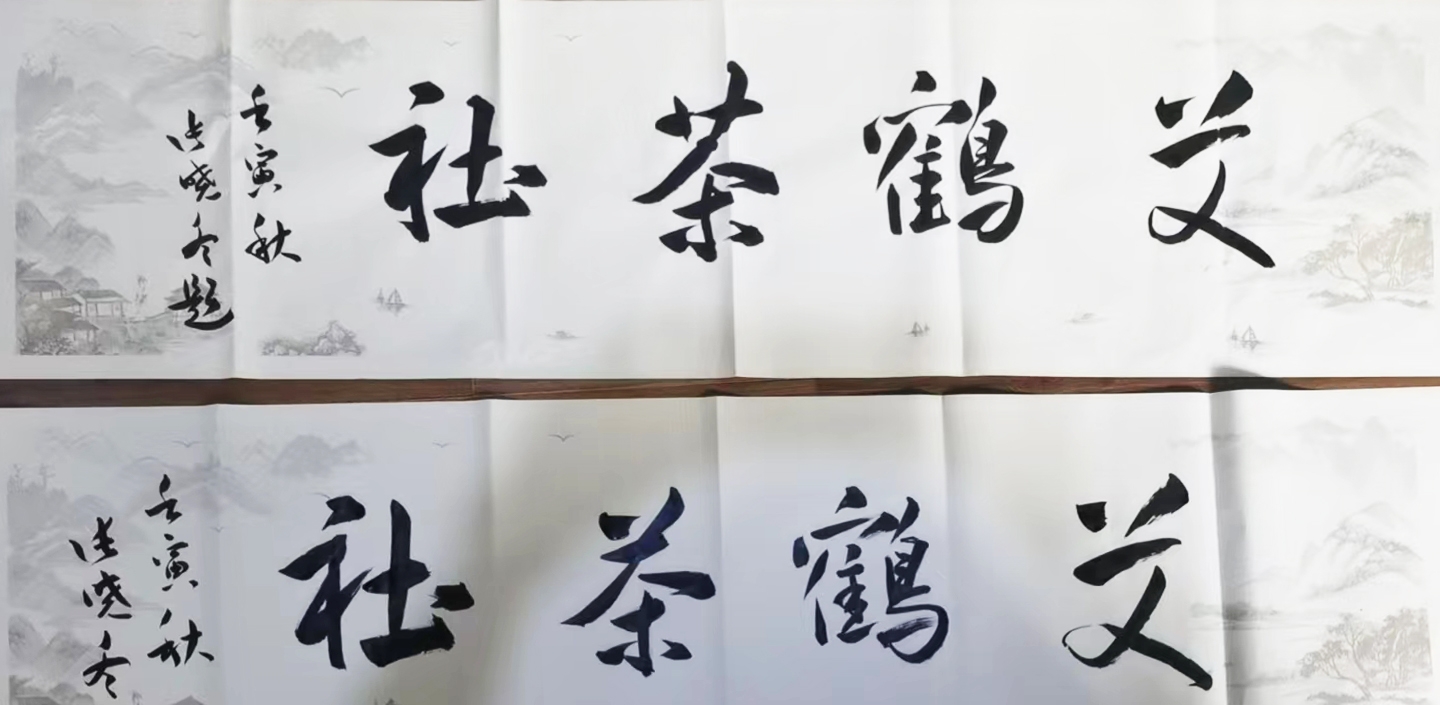 艾鶴茶社
壬寅秋
张晓冬题
艾鶴茶社
壬寅秋
张晓冬